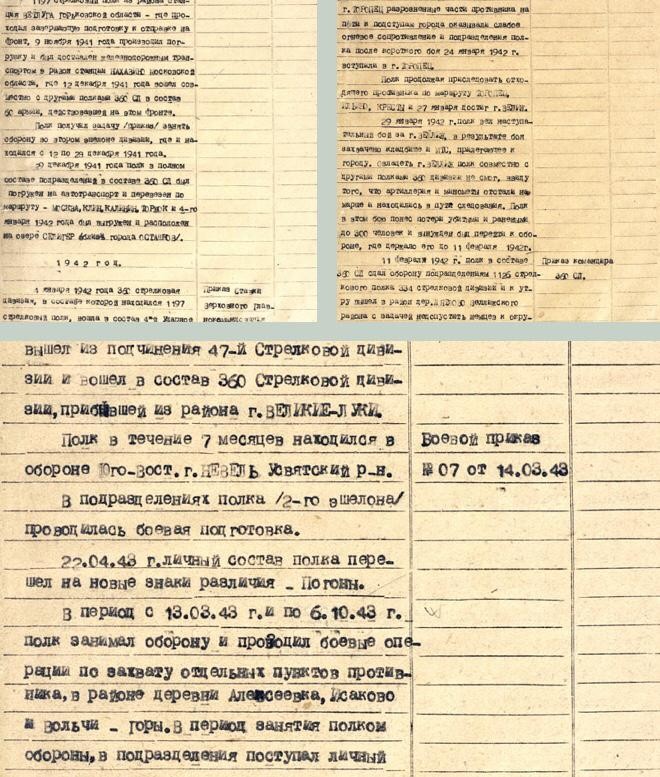 1197 стрелковый полк из района стан-
ции ВЕТЛУГА Горьковской области - где про-
ходил завершающую подготовку к отправке на
фронт, 9 ноября 1941 года производил пог-
рузку и был доставлен железнодорожным тран-
спортом в район станции НАХАБИНО Московской
области, где 12 декабря 1941 года вошел сов-
местно с другими полками 360 СД в состав
60 армии, действовавшей на этом фронте.
Полк получил задачу /приказ/ занять
оборону во втором эшелоне дивизии, где и на-
ходился с 12 по 29 декабря 1941 года.
30 декабря 1941 года полк в полном
составе подразделений в составе 360 СД был
погружен на автотранспорт и перевезен по
маршруту - МОСКВА, КЛИН, КАЛИНИН, ТОРЖОК и 4-го
января 1942 года был выгружен и расположен
на озере СЕЛИГЕР города ОСТАШКОВ/.
1942 год.
4 января 1942 года 360 стрелковая
дивизия, в составе которой находился 1197
стрелковый полк, вошла в состав 4-й Ударной
Приказ Ставки
верховного глав-
нокомандования
г. ТОРОПЕЦ разрозненные части противника на
пути и подступам города оказывали слабое
огневое сопротивление и подразделения пол-
ка после короткого боя 24 января 1942 г.
вступили в г. ТОРОПЕЦ.
Полк продолжая преследовать отхо-
дящего противника по маршруту ТОРОПЕЦ,
КРЕСТЫ и 27 января достиг г. ВЕЛИЖ.
29 января 1942 г. полк вел наступа-
тельный бой за г. ВЕЛИЖ, в результате боя
захвачено кладбище и МТС, прилегающее к
городу. Овладеть г. ВЕЛИЖ полк совместно с
другими полками 360 дивизии не смог, ввиду
того, что артиллерия и минометы отстали на
марше и находились в пути следования. Полк
в этом бою понес потери убитыми и ранеными
до 300 человек и вынужден был перейти к обо-
роне, где держало его до 11 февраля 1942г.
11 февраля 1942 г. полк в составе
360 СД сдал оборону подразделениям 1126 стрел-
кового полка 334 стрелковой дивизии и к ут-
ру вышел в район дер. Велижского
района с задачей недопустить немцев к окру-
Приказ командира
360 СД.
вышел из подчинения 47-й Стрелковой диви-
зии и вошел в состав 360 Стрелковой диви-
зии, прибывшей из района г. ВЕЛИКИЕ-ЛУКИ.
Полк в течение 7 месяцев находился в
обороне Юго-Вост. г. НЕВЕЛЬ Усвятский р-н.
В подразделениях полка /2-го эшелона/
проводилась боевая подготовка.
22.04.43 г. личный состав полка пере-
шел на новые знаки различия - Погоны.
В период с 13.03.43 г. и по 6.10.43 г.
полк занимал оборону и проводил боевые опе-
рации по захвату отдельных пунктов против-
ника, в районе деревни Алексеевка, Исаково
и Волчьи - горы. В период занятия полком
обороны, в подразделения поступал личный
Боевой приказ
№ 07 от 14.03.43